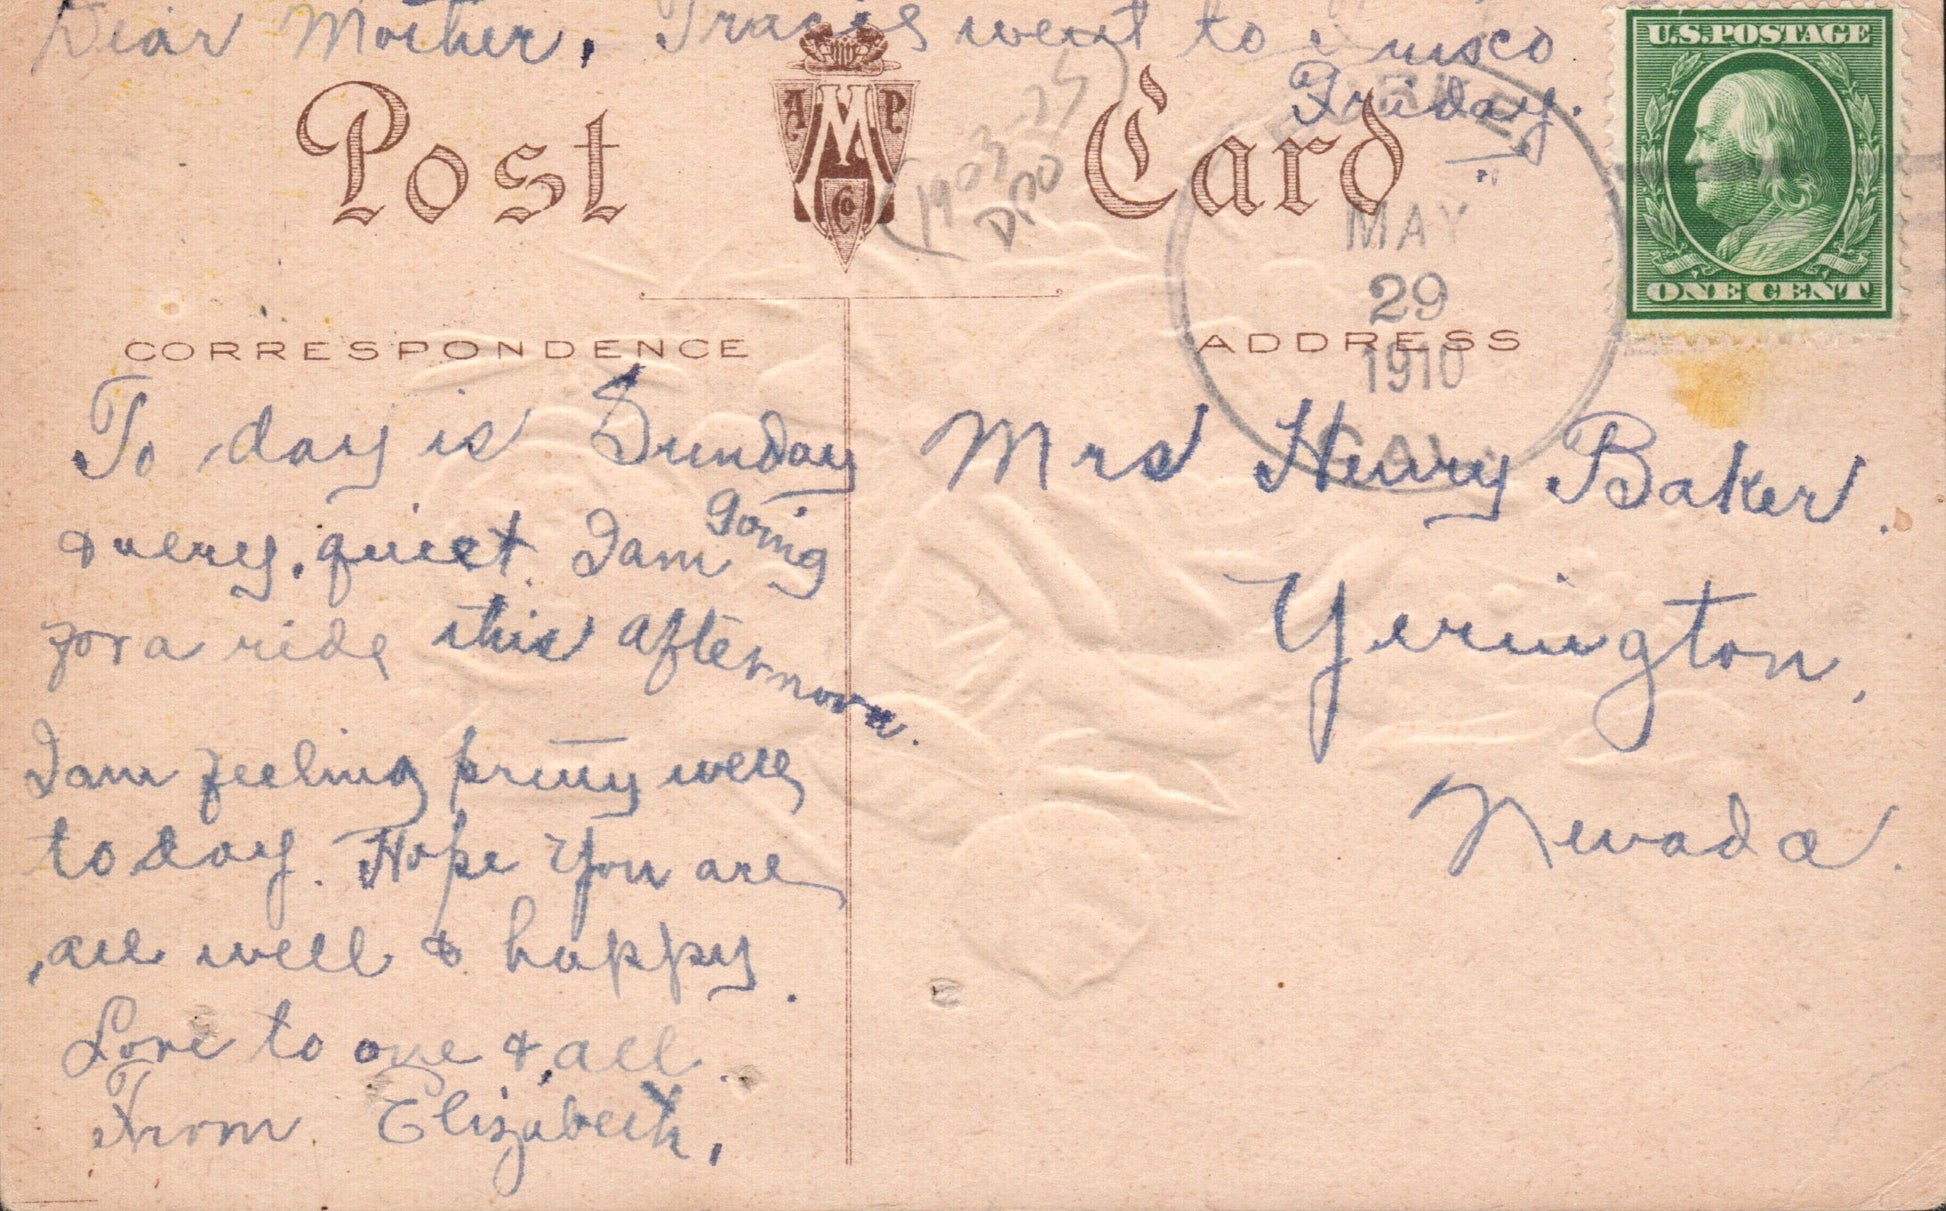 Dear Mother. Tracie went to Frisco
Friday.
Post Card
A M P
Co
(1903-25
DPO
U.S. POSTAGE
ONE CENT
MAY
29
1910
CAL.
CORRESPONDENCE
ADDRESS
To day is Sunday
& very quiet. I am going
for a ride this afternoon.
I am feeling pretty well
to day. Hope you are
all well & happy.
Love to one & all.
From Elizabeth.
Mrs Henry Baker.
Yerington,
Nevada.